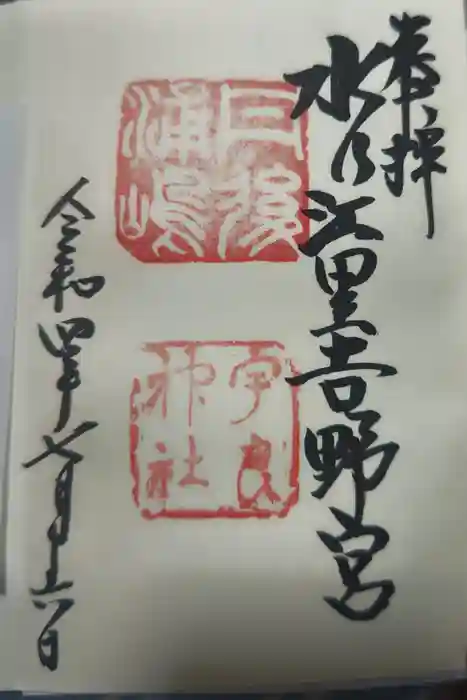 奉拝
水乃江里吉野宮
丹後
浦嶋
宇良
神社
令和四年七月十六日